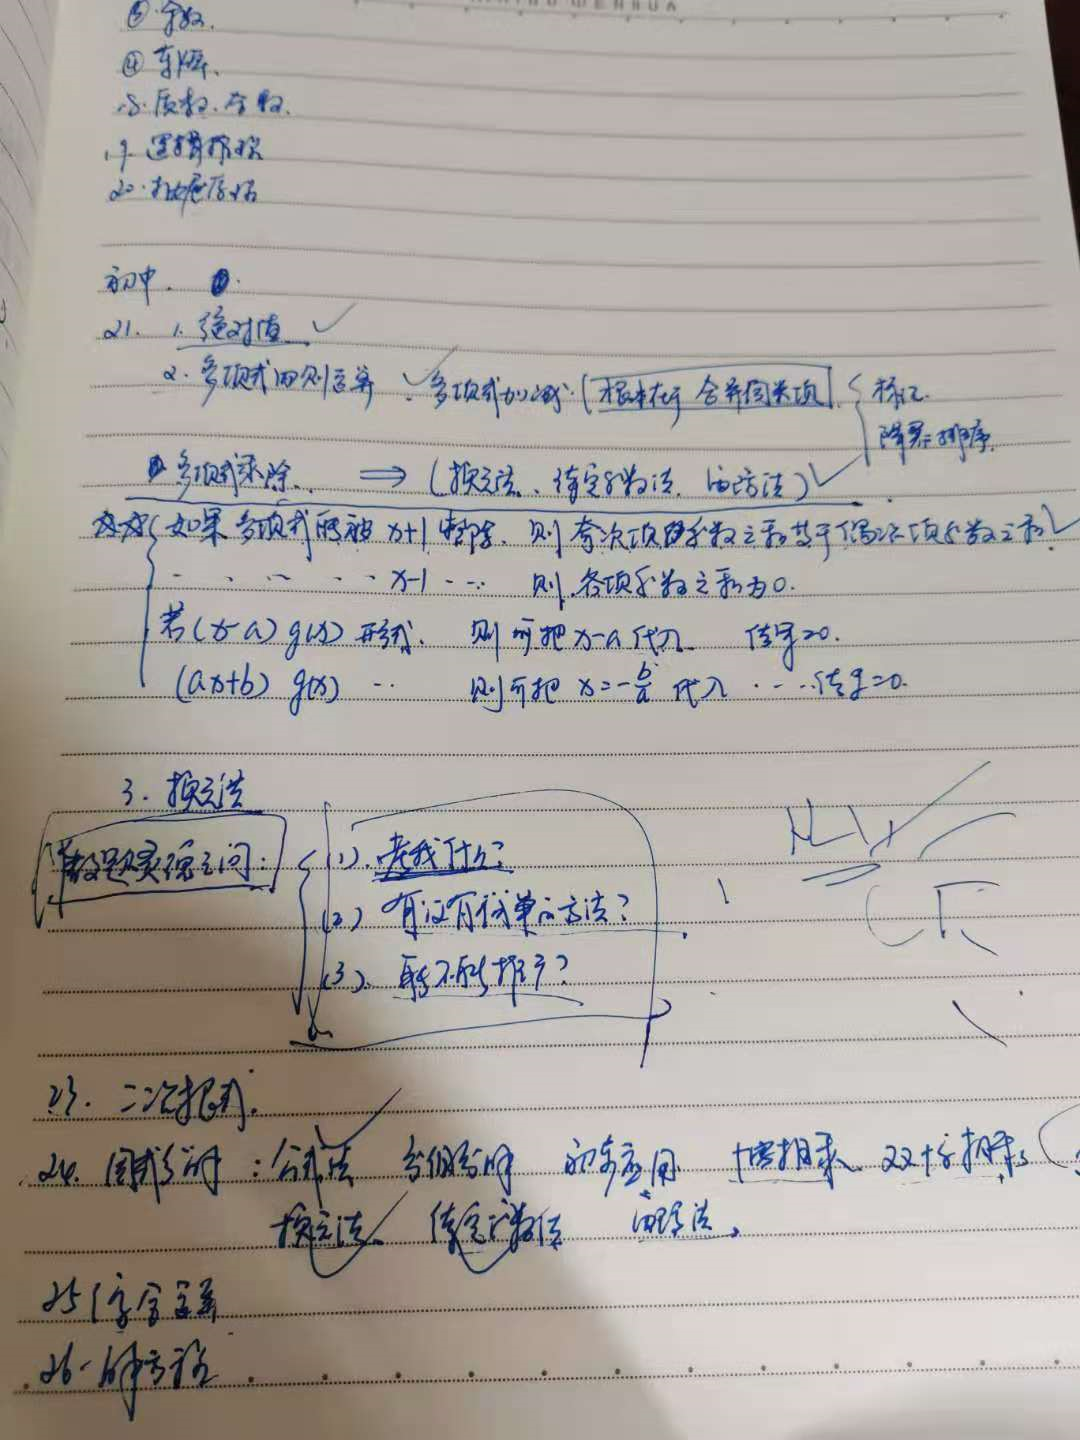 ③ 余数.
④ 整除.
18. 质数. 合数.
19. 逻辑推理
20. 拓展总结
初中.
21. 1. 绝对值 ✓
2. 多项式四则运算 ✓ 多项式加减. [根本在于 合并同类项] { 标记.
降幂排序.
多项式乘除. ⇒ (换元法、待定系数法、因式法) ✓
☆☆ { 如果多项式能被 x+1 整除. 则 奇次项系数之和等于偶次项系数之和 ✓
x-1 ... 则 各项系数之和为0.
若 (x-a) g(x) 形式. 则可把 x=a 代入 值=0.
(ax+b) g(x) ... 则可把 x=-b/a 代入 ... 值=0.
3. 换元法
做题灵魂之问: { (1). 考我什么?
(2) 有没有简单的方法?
(3). 能不能推广?
23. 二次根式.
24. 因式分解: 公式法 分组分解 初步应用 十字相乘、双十字相乘
换元法、待定系数法
26. 解方程